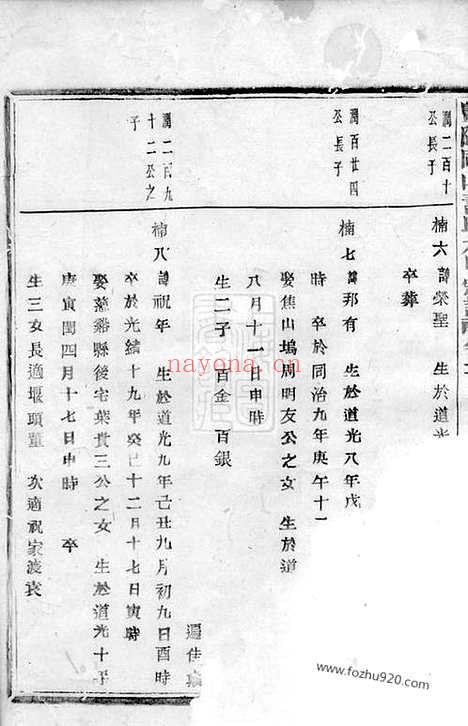 潤二百十
公長子
楠六諱榮聖 生於道光
卒葬
潤百廿四
公長子
楠七諱邦有 生於道光八年戊
時 卒於同治九年庚午十二
娶焦山塢周明友公之女 生於道
八月十一日申時
生二子 百金 百銀
遷住
潤二百九
十二公之
子
楠八諱祝年 生於道光九年己丑九月初九日酉時
卒於光緒十九年癸巳十二月十七日寅時
娶慈谿縣後宅葉貴三公之女 生於道光十年
庚寅閏四月十七日申時 卒
生三女長適堰頭董 次適祝家渡袁
nayona.cn
www.fozhu920.com